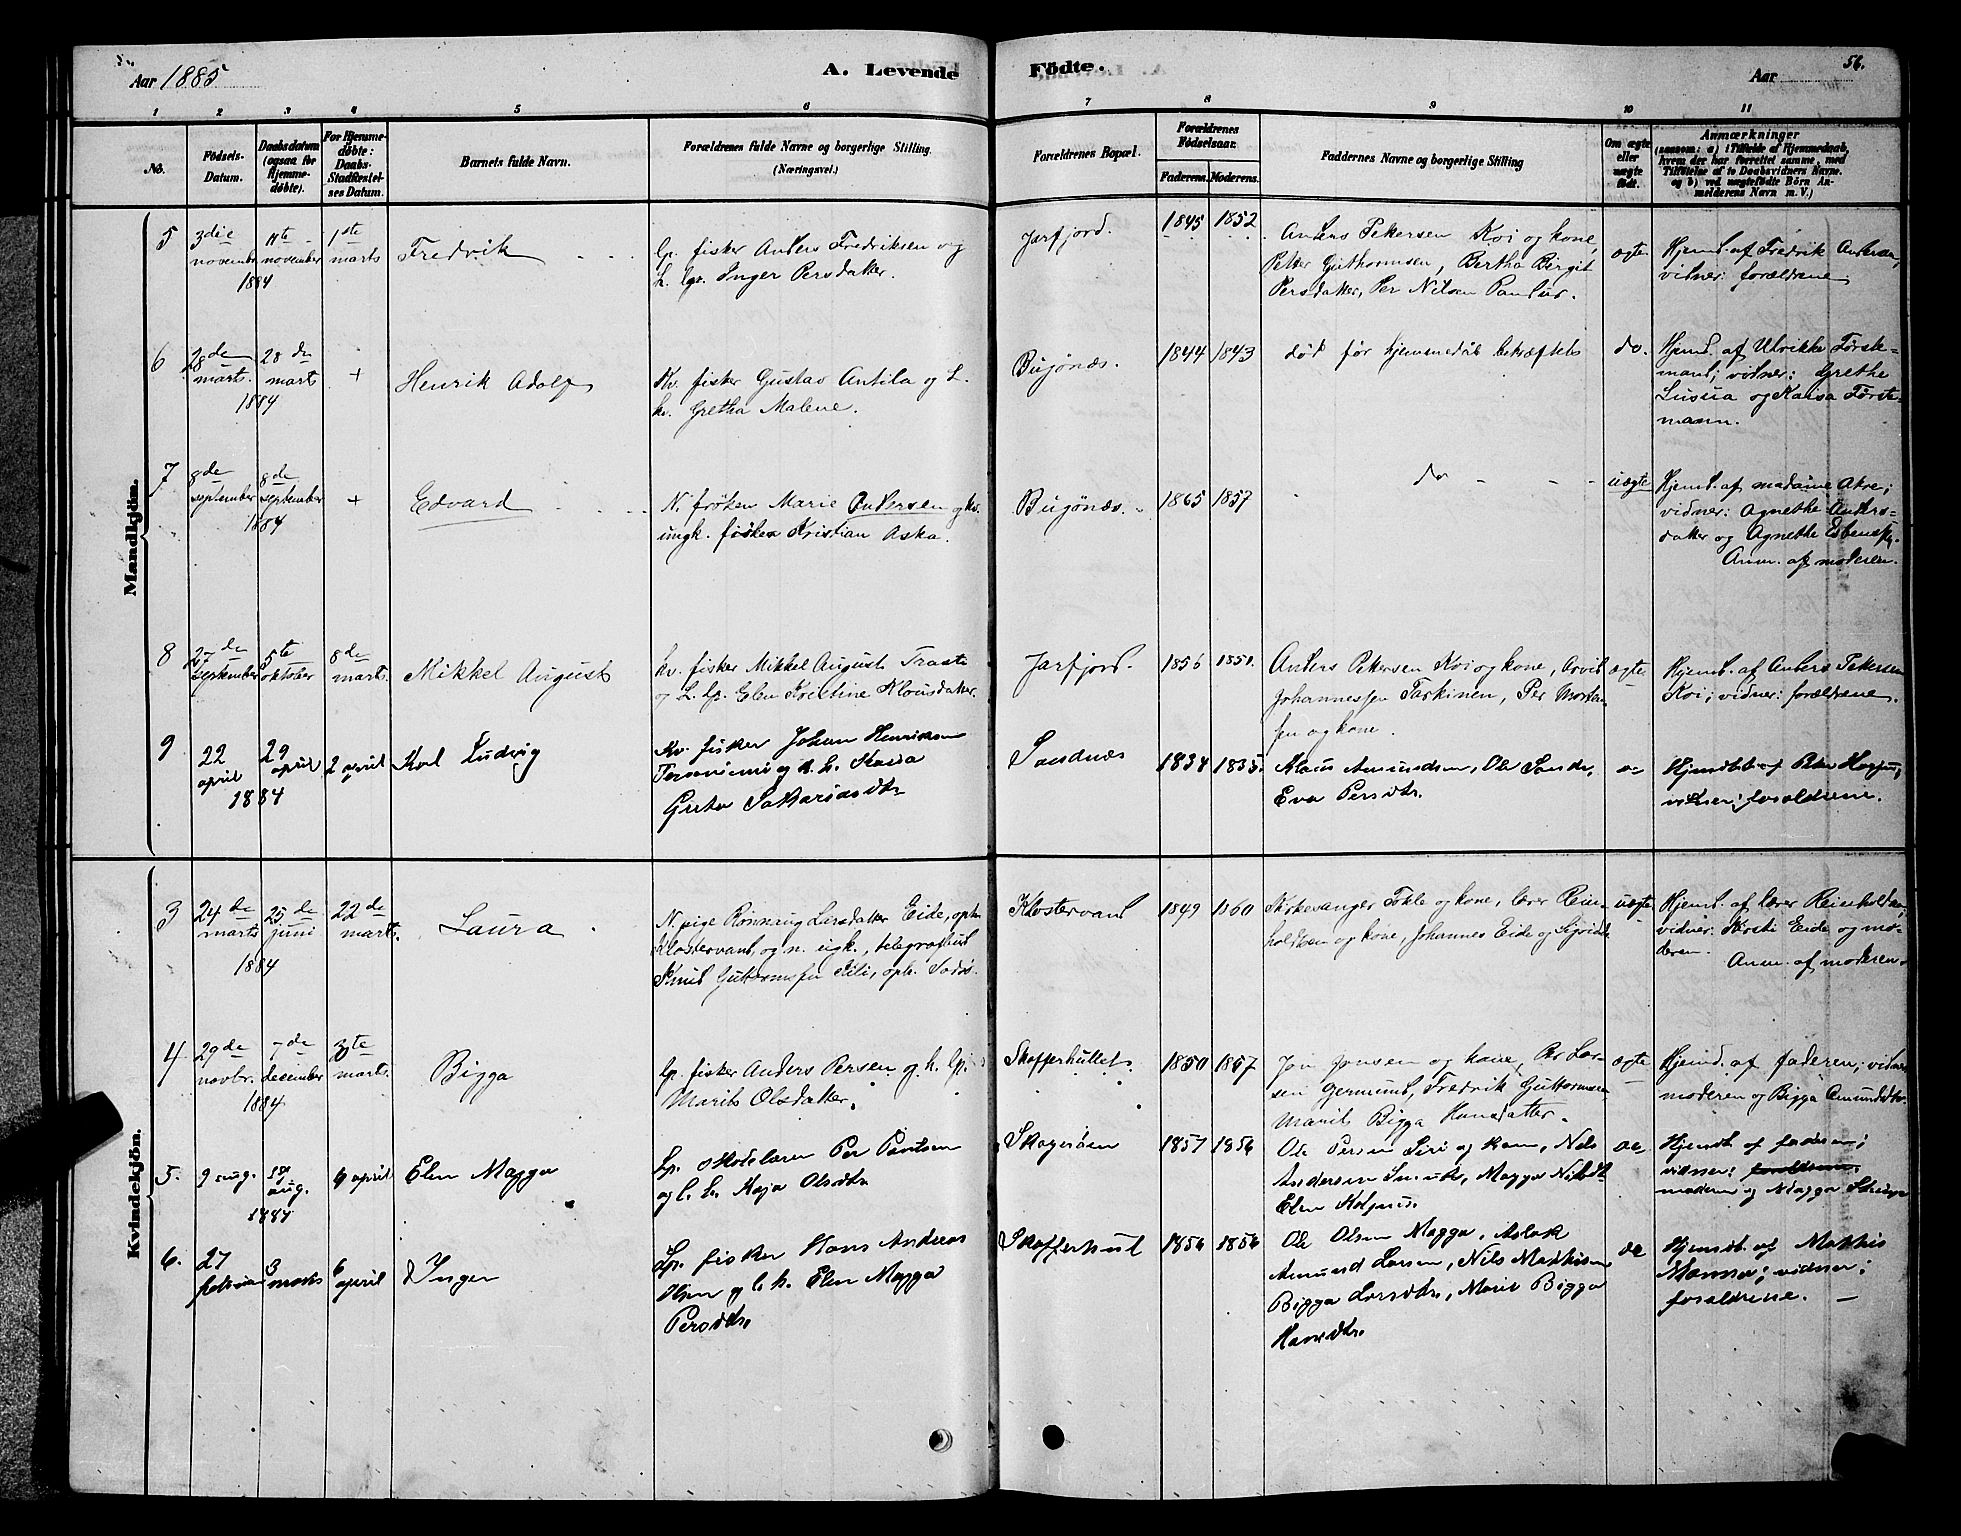 Aar 1885
A. Levende
Födte.
Aar
56.
1 2 3 4 5 6 7 8 9 10 11
No.
Födsels-
Datum.
Daabsdatum
(ogsaa for
Hjemme-
döbte).
For Hjemme-
döbte:
Daabs-
Stadfæstel-
ses Datum.
Barnets fulde Navn.
Forældrenes fulde Navne og borgerlige Stilling.
(Næringsvei.)
Forældrenes Bopæl.
Forældrenes
Födselsaar.
Faderens. Moderens.
Faddernes Navne og borgerlige Stilling
Om ægte
eller
uægte
födt.
Anmærkninger
(saasom: a) i Tilfælde af Hjemmedaab,
hvem der har forrettet samme, med
Tilföielse af to Daabsvidners Navne,
og b) ved uægtefödte Börn An-
melderens Navn m. V.)
Mandkjön.
5
3die
november
1884
11te
november
1ste
marts
Fredrik
lp. fisker Anders Fredriksen og
h. lp. Inger Persdatter.
Jarfjord.
1845 1852
Anders Pettersen Koi og kone,
Petter Guthormsen, Bertha Birgit
Persdatter, Per Nilsen
ægte
Hjemd. af Fredrik Andersen,
vidner: forældrene
6
28de
marts.
1884
28de
mart
+
Henrik Adolf
Kv. fisker Gustav Antila og h.
kv. Gretha Malene.
Bugönæs.
1844 1843
död för hjemmedåb bekræftets
do.
Hjemd. af Ulrikke Förste-
mand; vidner: Grethe
og Kaisa Förste-
mann.
7
8de
september
1884
8de
september
+
Edvard
N. fröken Marie Andersen og kv.
ungk. fisker Kristian Aska.
Bugönæs.
1865 1857
do
uægte
Hjemd. af madame Akre;
vidner: Agnethe Anders-
datter og Agnethe
Anm. af moderen.
8
27de
september
5te
oktober
8de
mart
Mikkel August
kv. fisker Mikkel August
og h. lp. Elen Kristine Klausdatter.
Jarfjord.
1856 1851.
Anders Pettersen Koi og kone, Arvid
Johannessen Tarkinen, Per Morten-
sen og kone.
ægte
Hjemd. af Anders Pettersen
Koi; vidner: forældrene.
9
22
april
1884
29
april
2 april
Karl Ludvig
Kv. fisker Johan Henriksen
og k. h. Kaisa
Greta Sakariasdtr
Sandnæs
1834 1835.
Klaus Amundsen, Ole
Eva Persdtr.
Hjemdbt af
vidner: forældrene.
Kvindekjön.
3
24de
marts
1884
25de
juni
22de
marts.
Laura
N. pige Rönnaug Larsdatter Eide, oph.
Klostervand, og n. ugk., telegrafbud
Knud Guttormsen
Klostervand
1849 1860
Kirkesanger Tokle og kone, lærer Rein-
holdtsen og kone, Johannes Eide og
uægte
Hjemd. af lærer Reinholdtsen,
vidner: Kirsti Eide og mo-
deren.
Anm. af moderen.
4
29de
novbr.
1884
7de
december
marts.
Bigga
lp. fisker Anders Persen og h. lp.
Marit Olsdatter.
Skafferhullet.
1850 1857
Jon Jonsen og kone, Per Lar-
sen Germund, Fredrik Guttormsen
Marit Bigga Hansdatter.
ægte
Hjemd. af faderen; vidner
moderen og Bigga Amundsdtr.
5.
9 aug.
1884
17
aug.
6 april
Elen Magga
Lp. skolelærer Per
og l. h. Kaja Olsdtr.
1857 1856
Ole Persen Siri og kone, Nils
Andersen Magga Nilsdtr
Elen
Hjemdt. af faderen;
vidner: forældrene.
moderen og Magga
6.
27
februar
3
marts
6
april
Inger
Lp. fisker Hans Andreas
Olsen og l. h. Elen Magga
Persdtr.
Skafferhul
1856 1856
Ole Olsen Magga, Aslak
Amund Larsen, Nils Mathisen
Bigga Larsdtr., Marit Bigga
Hansdtr.
Hjemdt. af Mathis
vidner:
forældrene.